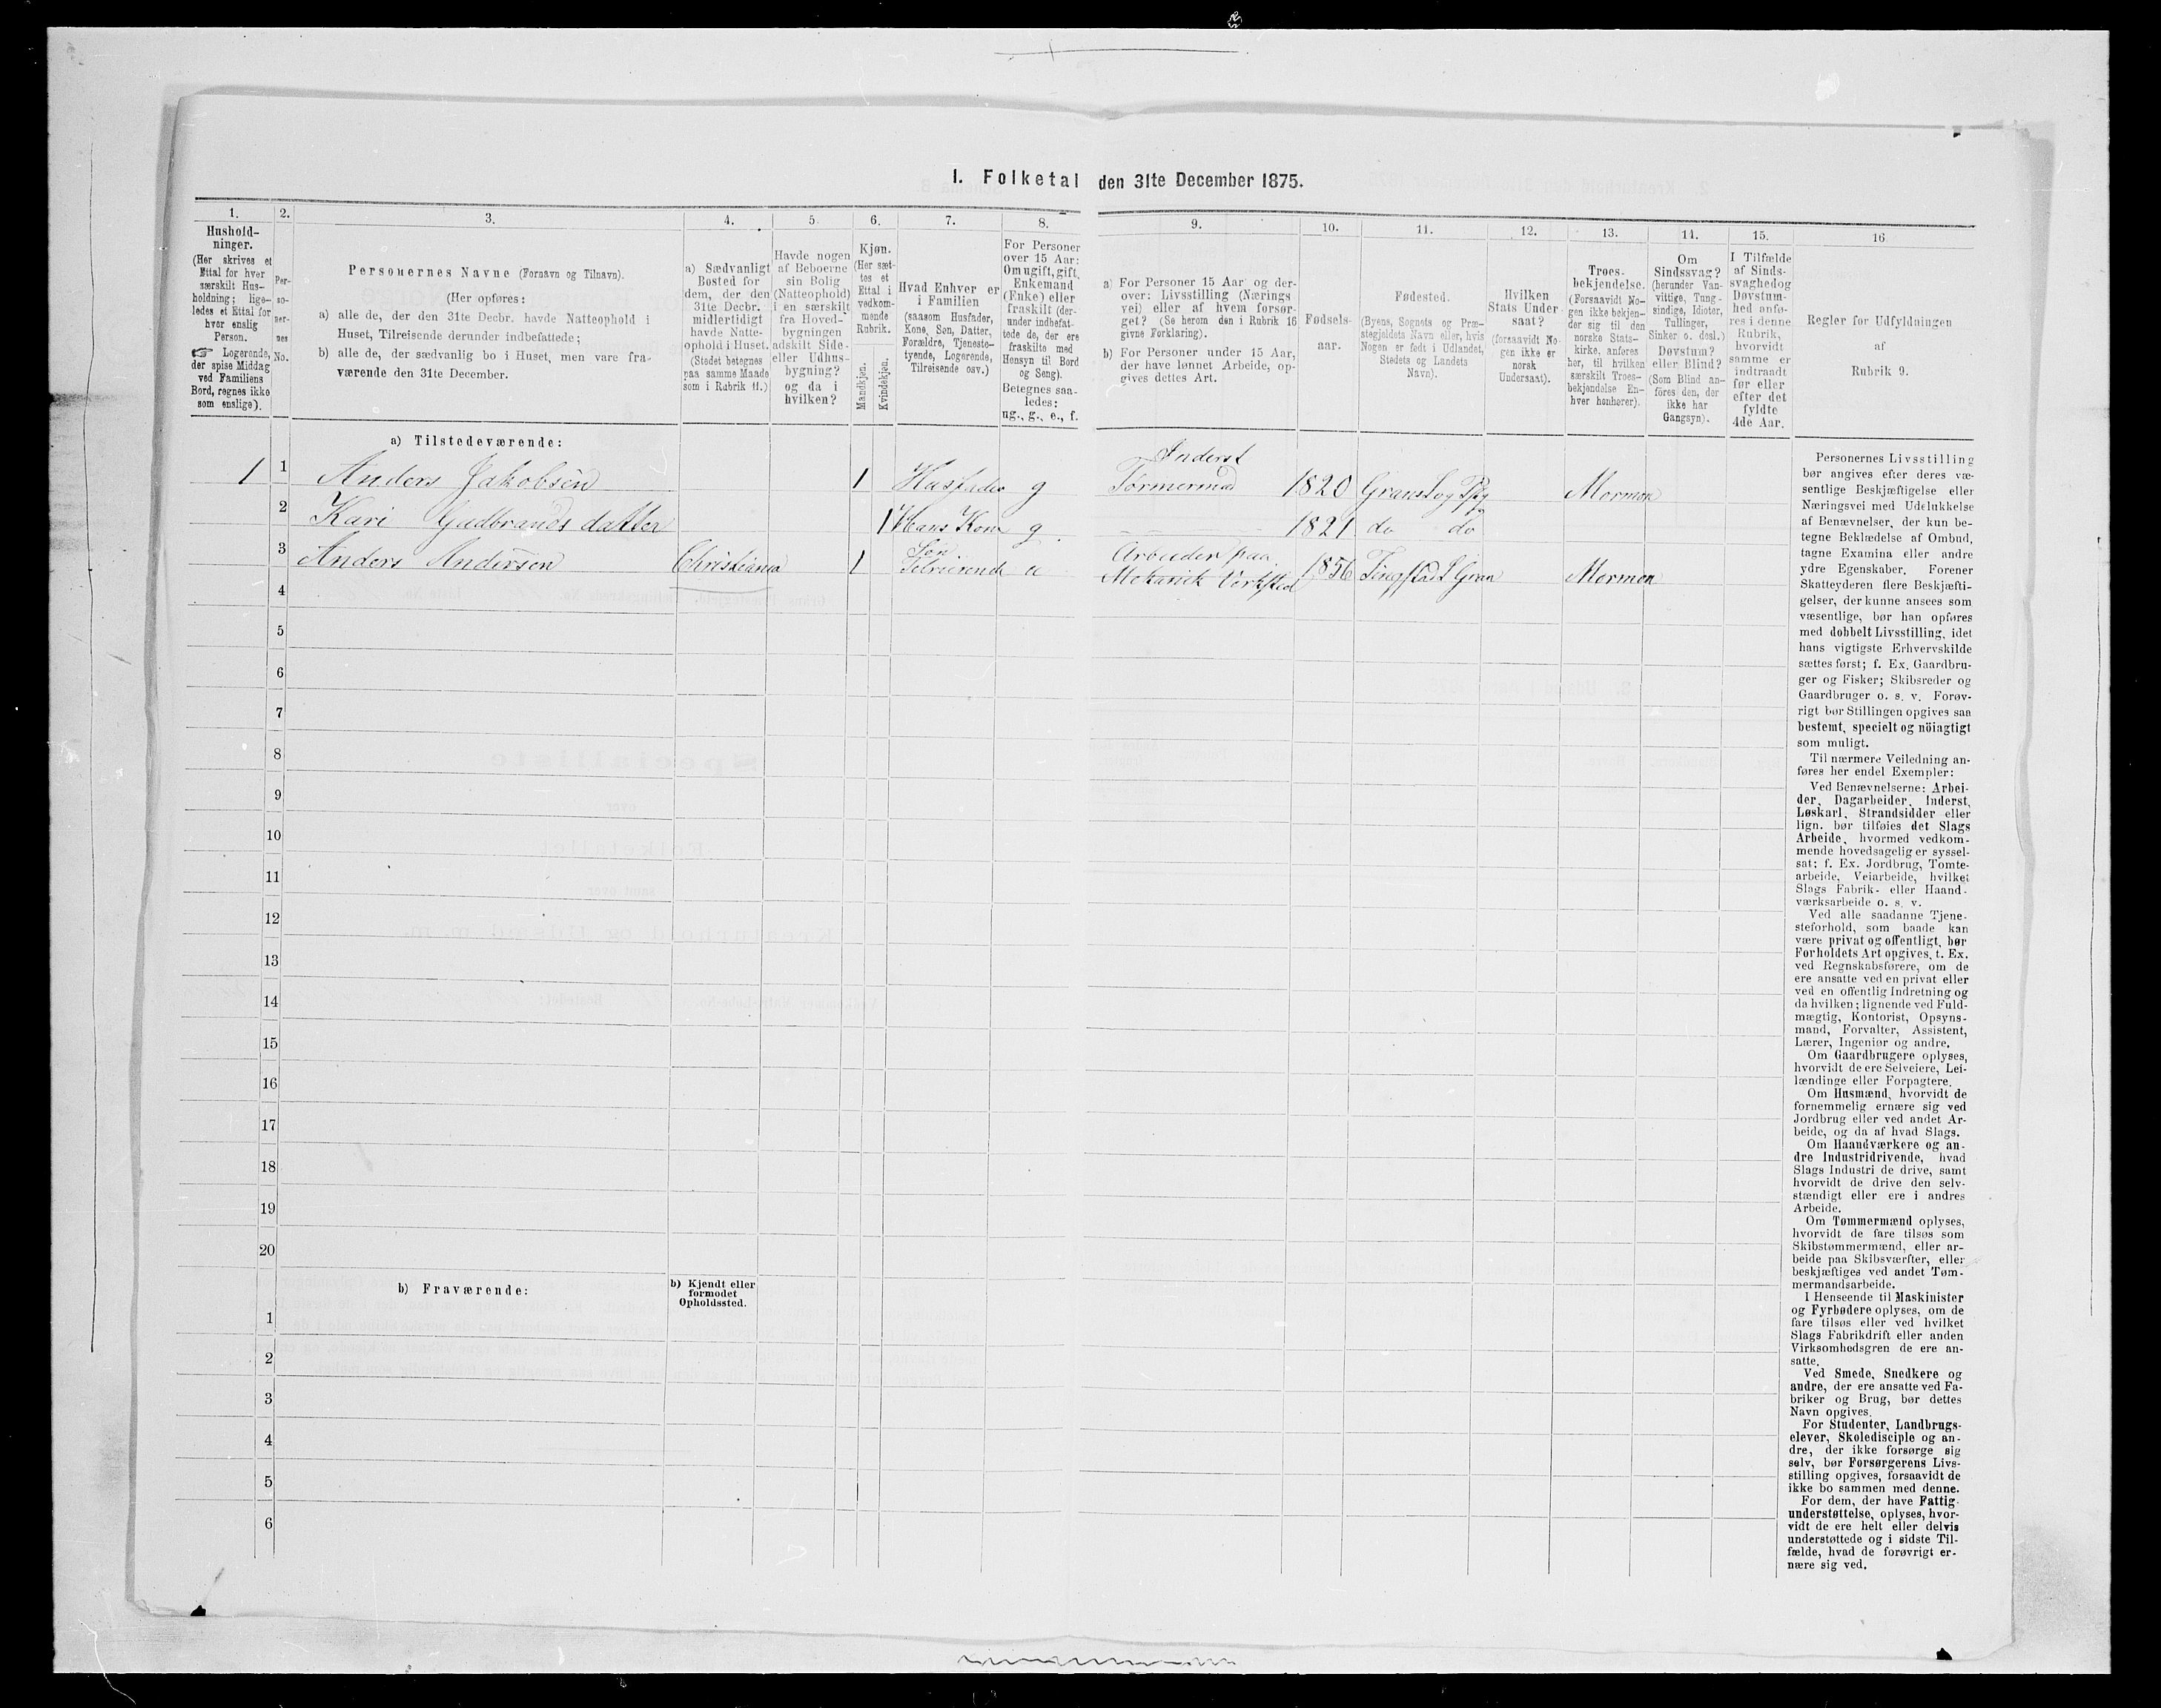 I. Folketal den 31te December 1875.
1.
Hushold-
ninger.
(Her skrives et
Ettal for hver
særskilt Hus-
holdning; lige-
ledes et Ettal for
hver enslig
Person.
☞ Logerende,
der spise Middag
ved Familiens
Bord, regnes ikke
som enslige).
2.
Per-
so-
ner-
nes
No.
3.
Personernes Navne (Fornavn og Tilnavn).
(Her opføres:
a) alle de, der den 31te Decbr. havde Natteophold i
Huset, Tilreisende derunder indbefattede;
b) alle de, der sædvanlig bo i Huset, men vare fra-
værende den 31te December.
4.
a) Sædvanligt
Bosted for
dem, der den
31te Decbr.
midlertidigt
havde Natte-
ophold i Huset.
(Stedet betegnes
paa samme Maade
som i Rubrik 11.)
5.
Havde nogen
af Beboerne
sin Bolig
(Natteophold)
i en særskilt
fra Hoved-
bygningen
adskilt Side-
eller Udhus-
bygning?
og da i
hvilken?
6.
Kjøn.
(Her sæt-
tes et
Ettal i
vedkom-
mende
Rubrik.
Mandkjøn.
Kvindekjøn.
7.
Hvad Enhver er
i Familien
(saasom Husfader,
Kone, Søn, Datter,
Forældre, Tjeneste-
tyende, Logerende,
Tilreisende osv.)
8.
For Personer
over 15 Aar:
Om ugift, gift,
Enkemand
(Enke) eller
fraskilt (der-
under indbefat-
tede de, der ere
fraskilte med
Hensyn til Bord
og Seng).
Betegnes saa-
ledes:
ug., g., e., f.
9.
a) For Personer 15 Aar og der-
over: Livsstilling (Nærings
vei) eller af hvem forsør-
get? (Se herom den i Rubrik 16
givne Forklaring).
b) For Personer under 15 Aar,
der have lønnet Arbeide, op-
gives dettes Art.
10.
Fødsels-
aar.
11.
Fødested.
(Byens, Sognets og Præ-
stegjeldets Navn eller, hvis
Nogen er født i Udlandet,
Stedets og Landets
Navn).
12.
Hvilken
Stats Under
saat?
(forsaavidt No-
gen ikke er
norsk
Undersaat).
13.
Troes-
bekjendelse.
(Forsaavidt No-
gen ikke bekjen-
der sig til den
norske Stats-
kirke, anføres
her, til hvilken
særskilt Troes-
bekjendelse En-
hver henhører).
14.
Om
Sindssvag?
(herunder Van-
vittige, Tung-
sindige, Idioter,
Tullinger,
Sinker o. desl.)
Døvstum?
eller Blind?
(Som Blind an-
føres den, der
ikke har
Gangsyn).
15.
I Tilfælde
af Sinds-
svaghed og
Døvstum-
hed anfø-
res i denne
Rubrik,
hvorvidt
samme er
indtraadt
før eller
efter det
fyldte
4de Aar.
16
Regler for Udfyldningen
af
Rubrik 9.
a) Tilstedeværende:
1 1 Anders Jakobsen 1 Husfader g Inderst
Tømermad 1820 Gransl og Pg Mormon
2 Kari Gudbrandsdatter 1 Hans Kone g 1821 do do
3 Anders Andersen Christiania 1 Søn
u Arbeider paa
Mekanisk Verksted 1856 Gran Mormon
4
5
6
7
8
9
10
11
12
13
14
15
16
17
18
19
20
b) Fraværende:
b) Kjendt eller
formodet
Opholdssted.
1
2
3
4
5
6
Personernes Livsstilling
bør angives efter deres væ-
sentlige Beskjæftigelse eller
Næringsvei med Udelukkelse
af Benævnelser, der kun be-
tegne Beklædelse af Ombud,
tagne Examina eller andre
ydre Egenskaber. Forener
Skatteyderen flere Beskjæfti-
gelser, der kunne ansees som
væsentlige, bør han opføres
med dobbelt Livsstilling, idet
hans vigtigste Erhvervskilde
sættes først; f. Ex. Gaardbru-
ger og Fisker; Skibsreder og
Gaardbruger o. s. v. Forøv-
rigt bør Stillingen opgives saa
bestemt, specielt og nöiagtigt
som muligt.
Til nærmere Veiledning an-
føres her endel Exempler:
Ved Benævnelserne: Arbei-
der, Dagarbeider, Inderst,
Løskarl, Strandsidder eller
lign. bør tilføies det Slags
Arbeide, hvormed vedkom-
mende hovedsagelig er syssel-
sat; f. Ex. Jordbrug, Tomte-
arbeide, Veiarbeide, hvilket
Slags Fabrik- eller Haand-
værksarbeide o. s. v.
Ved alle saadanne Tjene-
steforhold, som baade kan
være privat og offentligt, bør
Forholdets Art opgives, f. Ex.
ved Regnskabsførere, om de
ere ansatte ved en privat eller
ved en offentlig Indretning og
da hvilken; lignende ved Fuld-
mægtig, Kontorist, Opsyns-
mand, Forvalter, Assistent,
Lærer, Ingeniør og andre.
Om Gaardbrugere oplyses,
hvorvidt de ere Selveiere, Lei-
lændinge eller Forpagtere.
Om Husmænd, hvorvidt de
fornemmelig ernære sig ved
Jordbrug eller ved andet Ar-
beide, og da af hvad Slags.
Om Haandværkere og an-
dre Industridrivende, hvad
Slags Industri de drive, samt
hvorvidt de drive den selv-
stændigt eller ere i andres
Arbeide.
Om Tømmermænd oplyses,
hvorvidt de fare tilsøs som
Skibstømmermænd, eller ar-
beide paa Skibsværfter, eller
beskjæftiges ved andet Tøm-
mermandsarbeide.
I Henseende til Maskinister
og Fyrbødere oplyses, om de
fare tilsøs eller ved hvilket
Slags Fabrikdrift eller anden
Virksomhedsgren de ere an-
satte.
Ved Smede, Snedkere og
andre, der ere ansatte ved Fa-
briker og Brug, bør dettes
Navn opgives.
For Studenter, Landbrugs-
elever, Skoledisciple og an-
dre, der ikke forsørge sig
selv, bør Forsørgerens Livs-
stilling opgives, forsaavidt de
ikke bo sammen med denne.
For dem, der have Fattig-
understøttelse, oplyses, hvor-
vidt de ere helt eller delvis
understøttede og i sidste Til-
fælde, hvad de forøvrigt er-
nære sig ved.